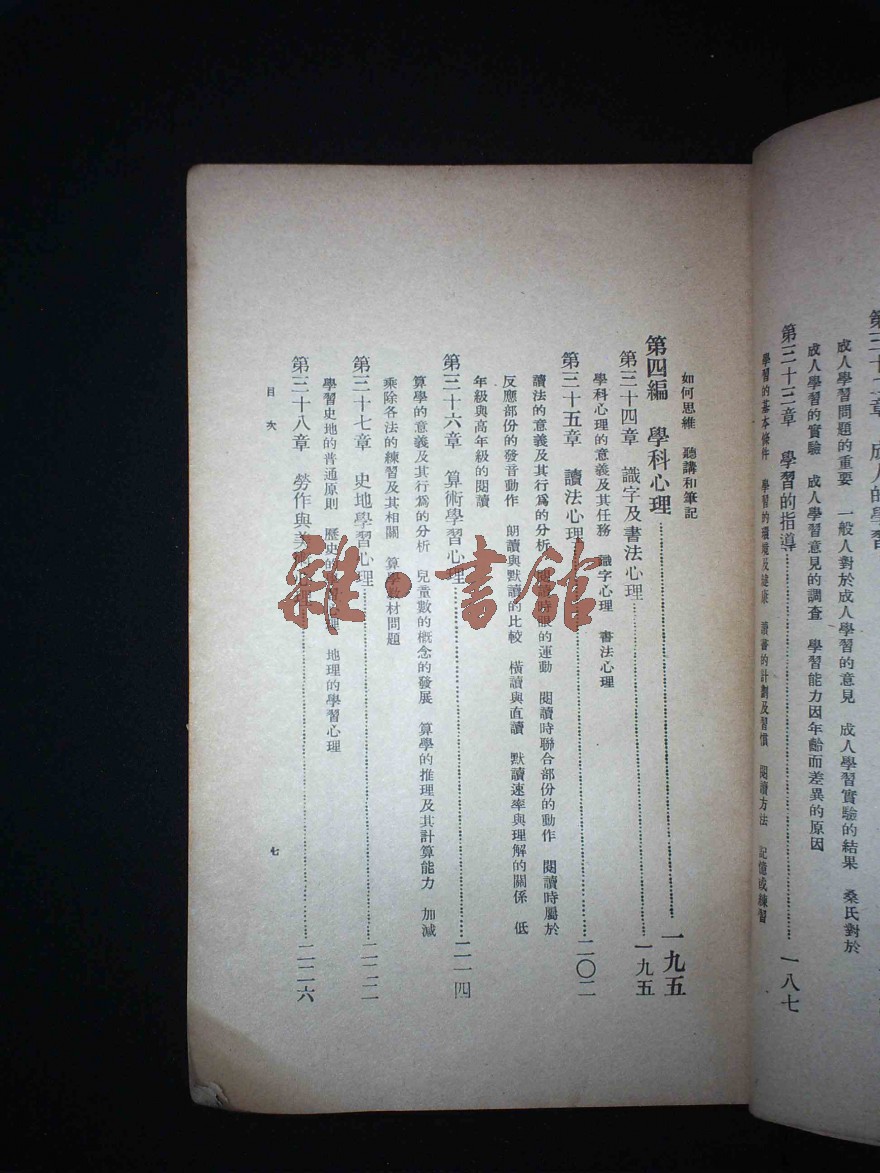 成人學習問題的重要　一般人對於成人學習的意見　成人學習實驗的結果　桑氏對於
成人學習的實驗　成人學習意見的調查　學習能力因年齡而差異的原因
第三十三章　學習的指導……一八七
學習的基本條件　學習的環境及健康　讀書的計劃及習慣　閱讀方法　記憶或練習
如何思維　聽講和筆記
第四編　學科心理……一九五
第三十四章　識字及書法心理……一九五
學科心理的意義及其任務　識字心理　書法心理
第三十五章　讀法心理……二〇二
讀法的意義及其行爲的分析　閱讀時眼的運動　閱讀時聯合部份的動作　閱讀時屬於
反應部份的發音動作　朗讀與默讀的比較　橫讀與直讀　默讀速率與理解的關係　低
年級與高年級的閱讀
第三十六章　算術學習心理……二一四
算學的意義及其行爲的分析　兒童數的概念的發展　算學的推理及其計算能力　加減
乘除各法的練習及其相關　算學教材問題
第三十七章　史地學習心理……二二二
學習史地的普通原則　歷史的學習心理　地理的學習心理
第三十八章　勞作與美術心理……二二六
目次
七
雜·書館